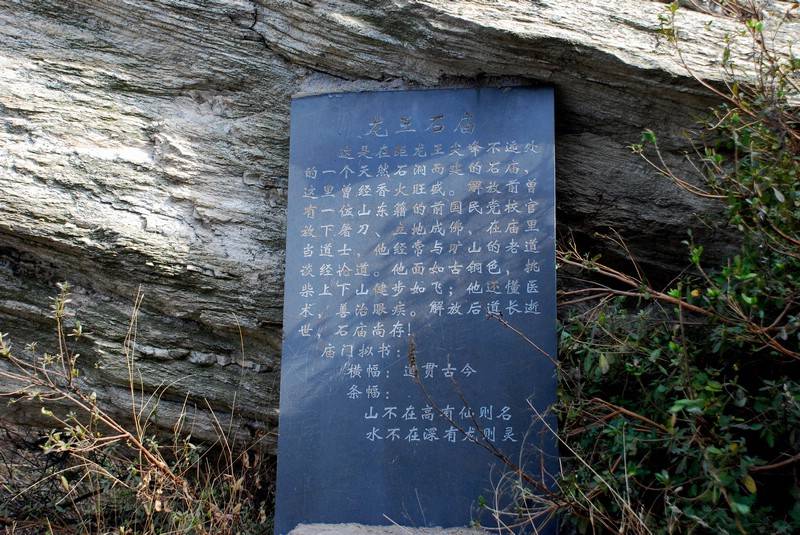 龙王石庙
这是在距龙王尖命不远处
的一个天然石洞而建的石庙，
这里曾经香火旺盛。解放前曾
有一位山东籍的前国民党校官
放下屠刀、立地成佛，在庙里
当道士，他经常与旷山的老道
谈经论道。他面如古铜色，挑
柴上下山健步如飞；他还懂医
术，善治眼疾。解放后道长逝
世，石庙尚存！
庙门拟书：
横幅：道贯古今
条幅：
山不在高有仙则名
水不在深有龙则灵